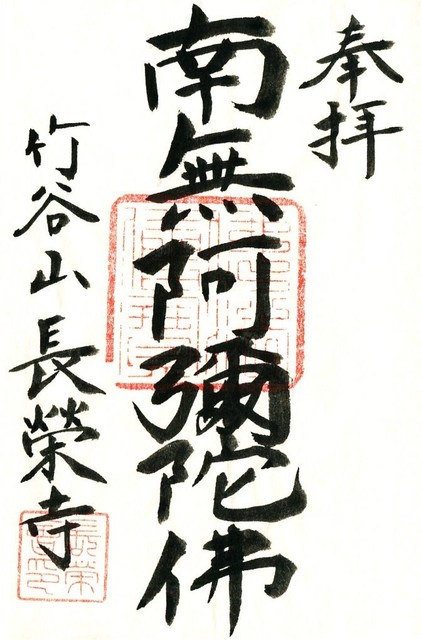 奉拝
南無阿彌陀佛
竹谷山長榮寺